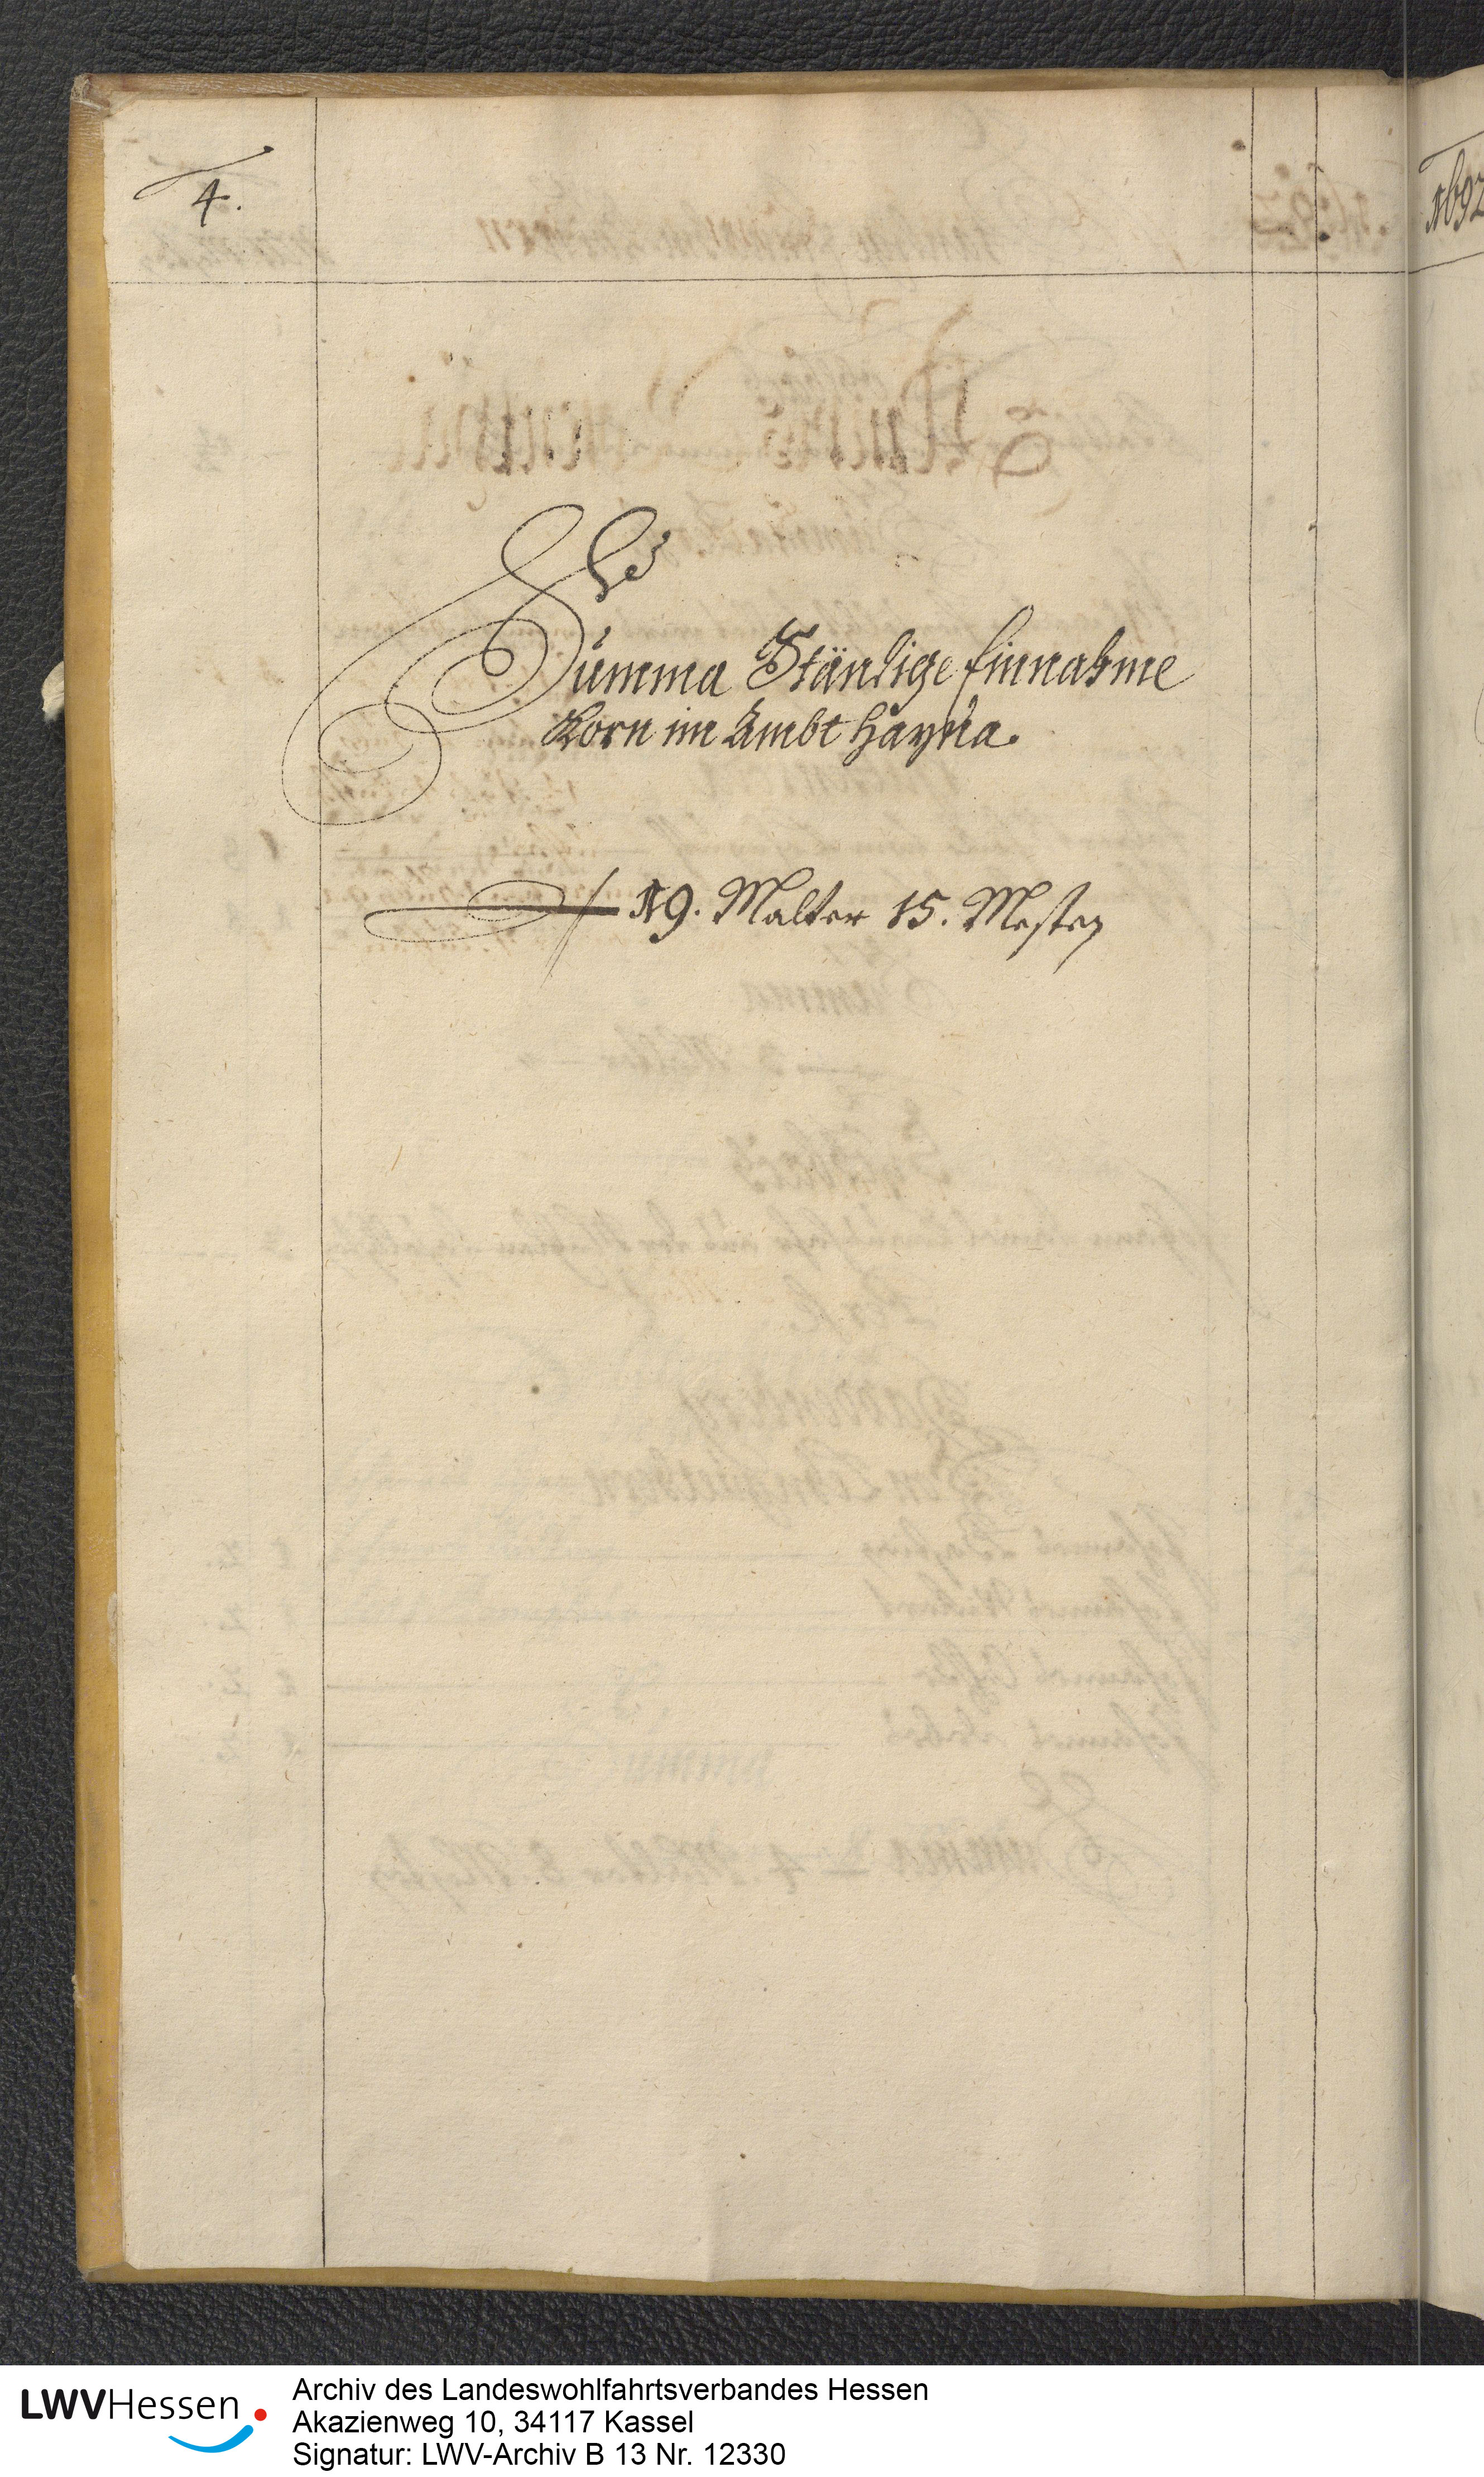 4.
1692
Summa Ständige Einnahme
Korn im Ambt Hayna.
19. Malter 15. Mesten
LWVHessen
Archiv des Landeswohlfahrtsverbandes Hessen
Akazienweg 10, 34117 Kassel
Signatur: LWV-Archiv B 13 Nr. 12330